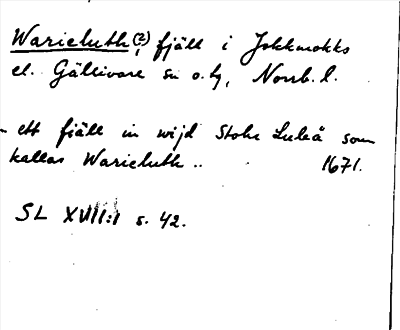 Warieluth (?), fjäll i Jokkmokks
el. Gällivare sn o. tg, Norrb. l.
- ett fjäll in wijd Stohr Luleå som
kallas Warieluth .. 1671.
SL XVII:1 s. 42.